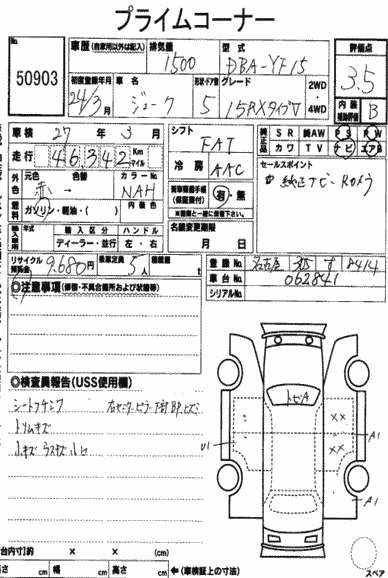 プライムコーナー
No. 車歴 (自家用以外は記入) 排気量 型式 評価点
50903 1500 DBA-YF15 3.5
初度登録年月 車名 形状 ドア数 グレード 2WD ・ 4WD 内装 補助評価
24/3月 ジューク 5 15RXタイプV B
車検 27年 3月 シフト FAT 純正品 SR 純AW PS PW
走行 46342 Km マイル 冷房 AAC カワ TV ナビ エアB
元色 色替 カラーNo. セールスポイント
赤 → 色 NAH 純正ナビ・Rカメラ
燃料 ガソリン・軽油・( ) 内装色 (保証書付) 有・無
※書類と一緒に保管下さい。
年式 輸入区分 ハンドル 名義変更期限
ディーラー・並行 左・右 月 日
リサイクル預託金 9,680円 乗車定員 5人 積載量 t 登録No. 名古屋
車台No. 062841
シリアルNo.
◎注意事項 (修復・不具合箇所および状態等)
◎検査員報告(USS使用欄)
トリムキズ
トビA
XX
XX
U1
A1
A1
(台内寸)約 × × (cm)
長さ cm 幅 cm 高さ cm ←(車検証上の寸法)
スペア